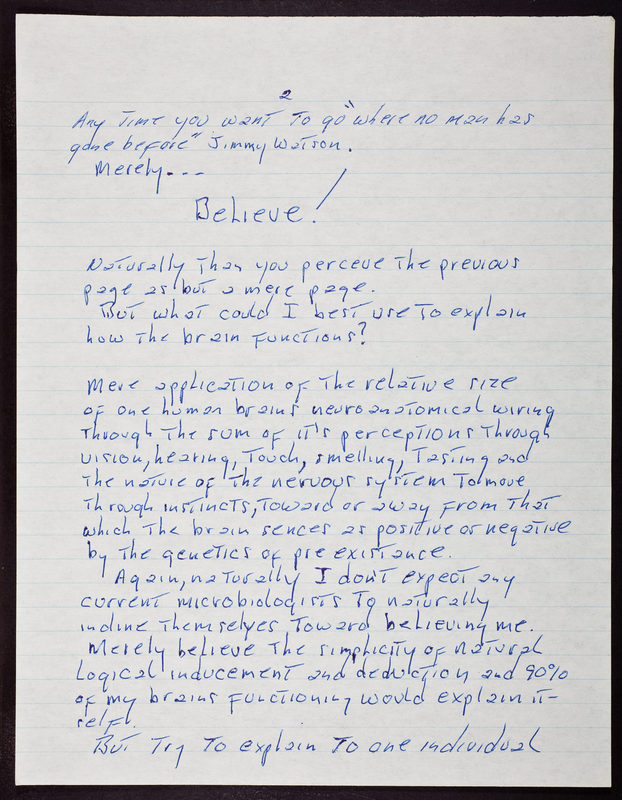 2
Any Time you want To go "where no man has
gone before" Jimmy Watson.
Merely---
Believe!
Naturally Than you perceve The previous
page as but a mere page.
But what could I best use To explain
how The brain functions?
Mere application of The relative size
of one human brains neuroanatomical wiring
Through The sum of it's perceptions Through
vision, hearing, Touch, smelling, Tasting and
The nature of The nervous system To move
Through instincts, Toward or away from That
which The brain sences as positive or negative
by The genetics of pre existance.
Again, naturally I don't expect any
current microbiologists To naturally
incline Themselves Toward believing me.
Merely believe The simplicity of natural
Logical inducement and deduction and 90%
of my brains functioning would explain it-
self.
But Try To explain To one individual